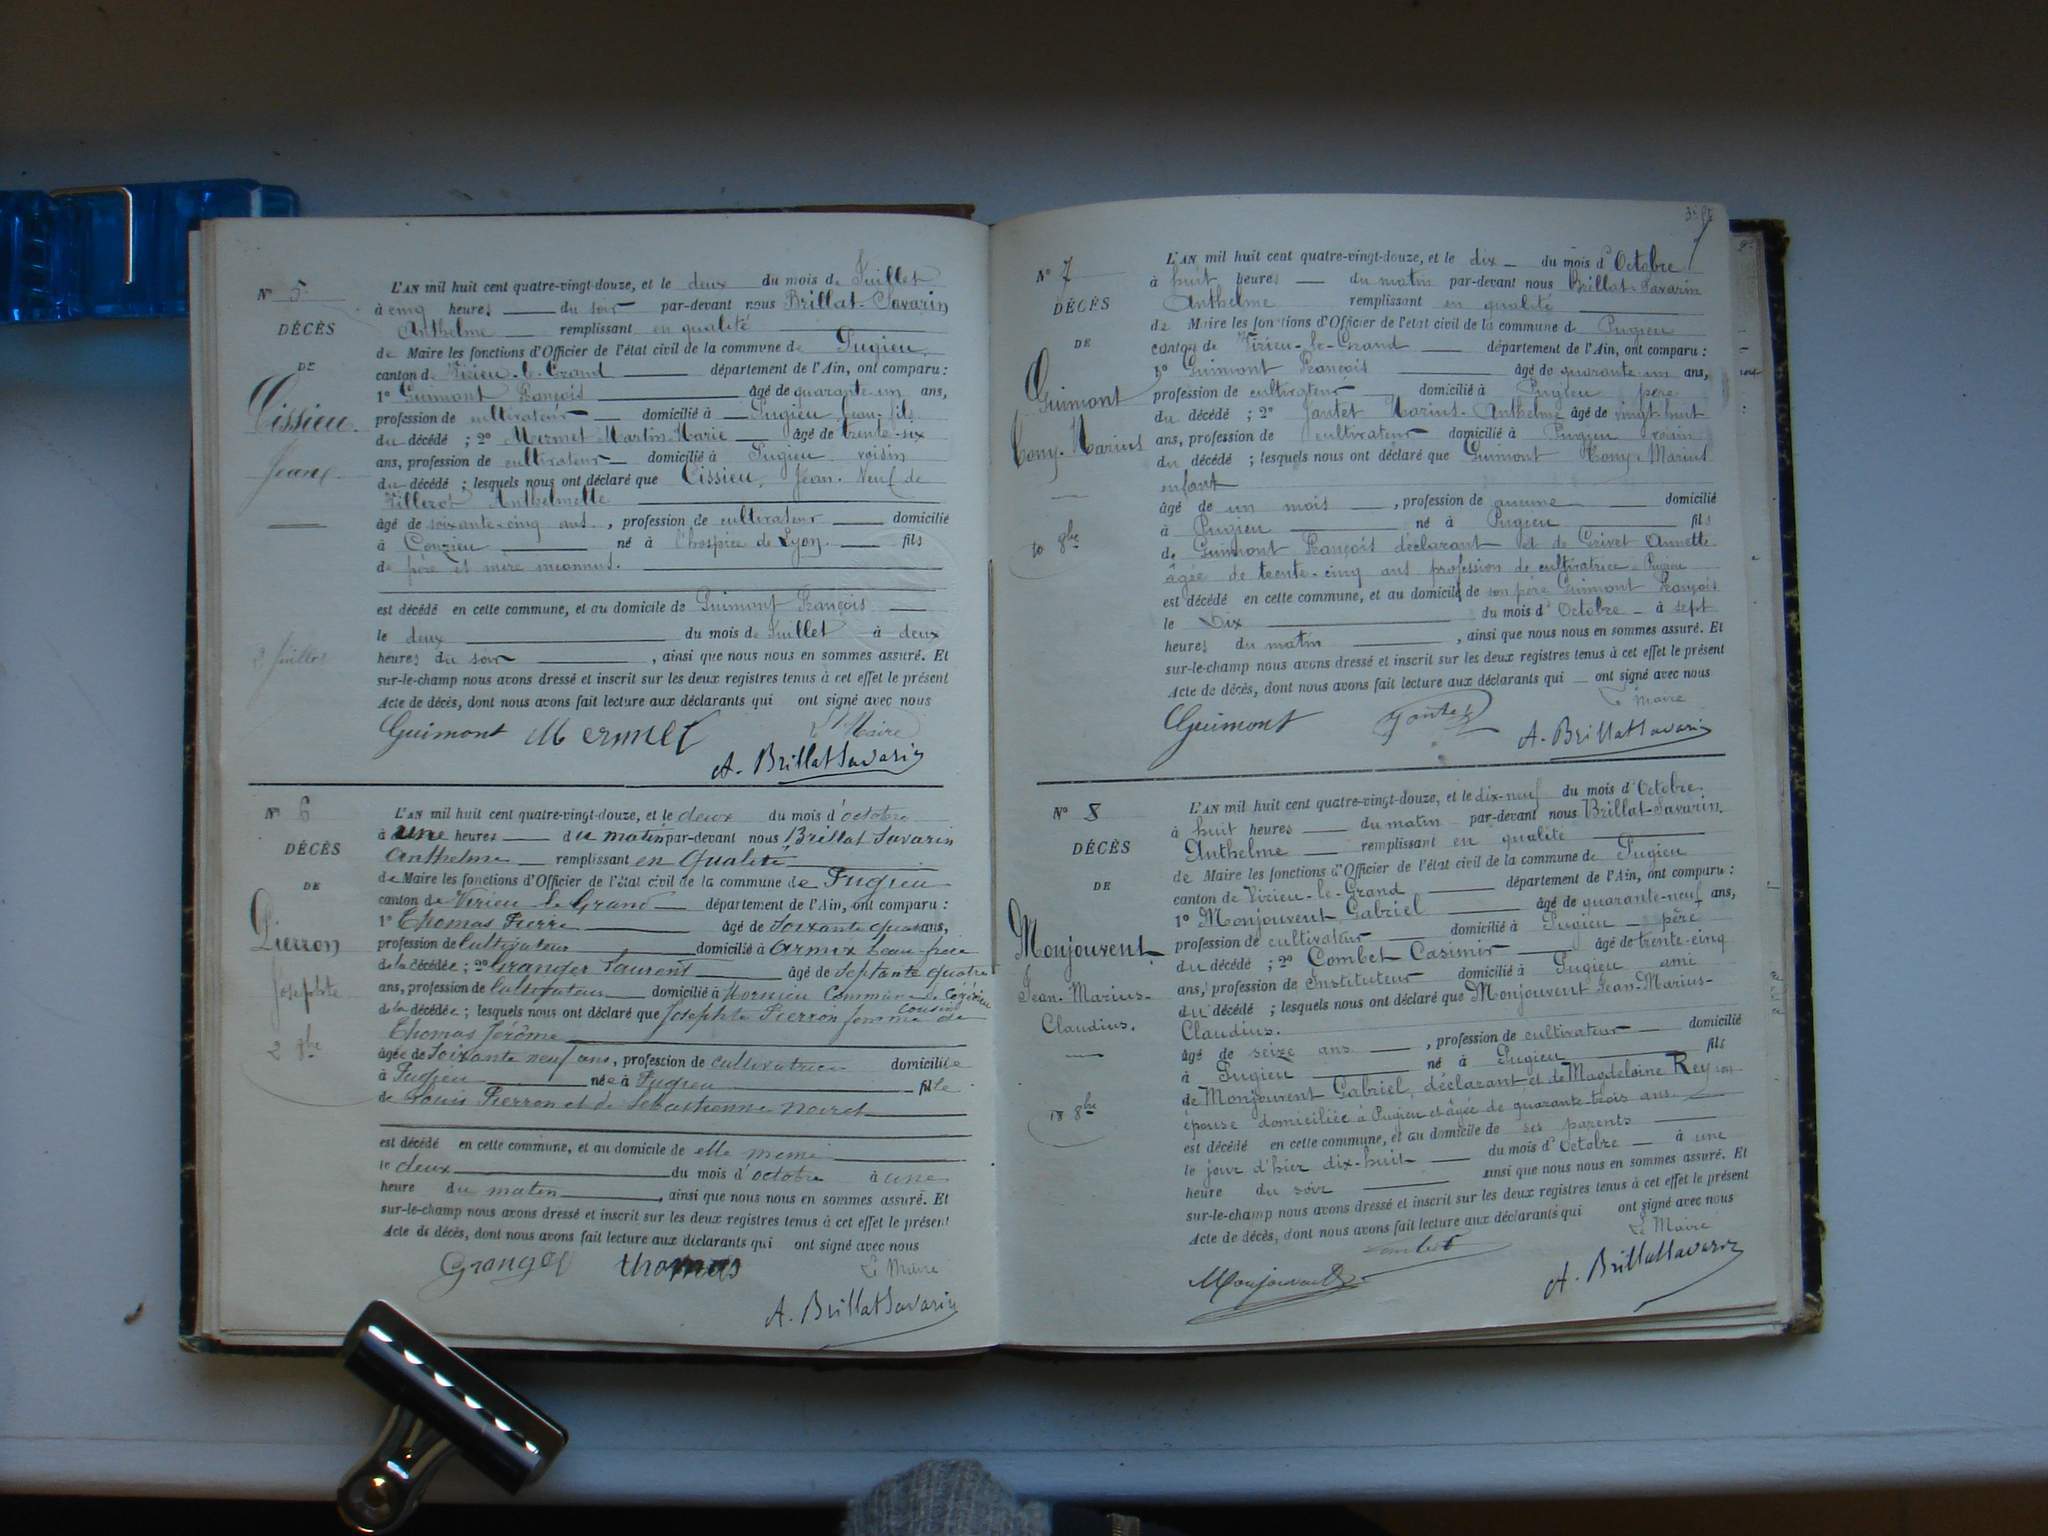 N° 5
DÉCÈS
DE
Cissieu
Jean
2 Juillet
L'AN mil huit cent quatre-vingt-douze, et le deux du mois de Juillet
à cinq heures du soir par-devant nous Brillat-Savarin
Anthelme remplissant en qualité
de Maire les fonctions d'Officier de l'état civil de la commune de Pugieu
canton de Virieu-le-Grand département de l'Ain, ont comparu :
1° Guimont François âgé de quarante-un ans,
profession de cultivateur domicilié à Pugieu
du décédé ; 2° Mermet Martin Marie âgé de trente-six
ans, profession de cultivateur domicilié à Pugieu voisin
du décédé ; lesquels nous ont déclaré que Cissieu, Jean. Veuf de
Anthelmette
âgé de soixante-cinq ans, profession de cultivateur domicilié
à Conzieu né à l'hospice de Lyon fils
de père et mère inconnus.
est décédé en cette commune, et au domicile de Guimont François
le deux du mois de Juillet à deux
heures du soir, ainsi que nous nous en sommes assuré. Et
sur-le-champ nous avons dressé et inscrit sur les deux registres tenus à cet effet le présent
Acte de décès, dont nous avons fait lecture aux déclarants qui ont signé avec nous
Guimont Mermet Le Maire
A. Brillat Savarin
N° 6
DÉCÈS
DE
Pierron
Josephte
2 8bre
L'AN mil huit cent quatre-vingt-douze, et le deux du mois d'octobre
à une heures du matin par-devant nous Brillat Savarin
Anthelme remplissant en qualité
de Maire les fonctions d'Officier de l'état civil de la commune de Pugieu
canton de Virieu le Grand département de l'Ain, ont comparu :
1° Thomas Pierre âgé de soixante ans,
profession de cultivateur domicilié à Armix beau-frère
de la décédée ; 2° Granger Laurent âgé de septante quatre
ans, profession de cultivateur domicilié à commune de
cousin
de la décédée ; lesquels nous ont déclaré que Josephte Pierron femme de
Thomas Jérôme
âgée de soixante neuf ans, profession de cultivatrice domiciliée
à Pugieu née à Pugieu fille
de Louis Pierron et de Sébastienne
est décédé en cette commune, et au domicile de elle meme
le deux du mois d'octobre à une
heure du matin, ainsi que nous nous en sommes assuré. Et
sur-le-champ nous avons dressé et inscrit sur les deux registres tenus à cet effet le présent
Acte de décès, dont nous avons fait lecture aux déclarants qui ont signé avec nous
Granger Thomas Le Maire
A. Brillat Savarin
N° 7
DÉCÈS
DE
Guimont
Tony-Marius
10 8bre
L'AN mil huit cent quatre-vingt-douze, et le dix du mois d'Octobre
à huit heures du matin par-devant nous Brillat-Savarin
Anthelme remplissant en qualité
de Maire les fonctions d'Officier de l'état civil de la commune de Pugieu
canton de Virieu-le-Grand département de l'Ain, ont comparu :
1° Guimont François âgé de quarante-un ans,
profession de cultivateur domicilié à Pugieu père
du décédé ; 2° Jantet Marius-Anthelme âgé de vingt-huit
ans, profession de cultivateur domicilié à Pugieu voisin
du décédé ; lesquels nous ont déclaré que Guimont Tony-Marius
enfant
âgé de un mois, profession de aucune domicilié
à Pugieu né à Pugieu fils
de Guimont François déclarant et de Grivet Annette
âgée de trente-cinq ans profession de cultivatrice à Pugieu
est décédé en cette commune, et au domicile de son père Guimont François
le Dix du mois d'Octobre à sept
heures du matin, ainsi que nous nous en sommes assuré. Et
sur-le-champ nous avons dressé et inscrit sur les deux registres tenus à cet effet le présent
Acte de décès, dont nous avons fait lecture aux déclarants qui ont signé avec nous
Le Maire
Guimont Jantet A. Brillat Savarin
N° 8
DÉCÈS
DE
Monjouvent
Jean-Marius-
Claudius.
18 8bre
L'AN mil huit cent quatre-vingt-douze, et le dix-neuf du mois d'Octobre.
à huit heures du matin par-devant nous Brillat-Savarin.
Anthelme remplissant en qualité
de Maire les fonctions d'Officier de l'état civil de la commune de Pugieu
canton de Virieu-le-Grand département de l'Ain, ont comparu :
1° Monjouvent Gabriel âgé de quarante-neuf ans,
profession de cultivateur domicilié à Pugieu père
du décédé ; 2° Combet Casimir âgé de trente-cinq
ans, profession de Instituteur domicilié à Pugieu ami
du décédé ; lesquels nous ont déclaré que Monjouvent Jean-Marius-
Claudius.
âgé de seize ans, profession de cultivateur domicilié
à Pugieu né à Pugieu fils
de Monjouvent Gabriel, déclarant et de Magdeleine Rey
épouse domiciliée à Pugieu et âgée de quarante-trois ans
est décédé en cette commune, et au domicile de ses parents
le jour d'hier dix-huit du mois d'Octobre à une
heure du soir ainsi que nous nous en sommes assuré. Et
sur-le-champ nous avons dressé et inscrit sur les deux registres tenus à cet effet le présent
Acte de décès, dont nous avons fait lecture aux déclarants qui ont signé avec nous
Combet Le Maire
Monjouvent A. Brillat Savarin